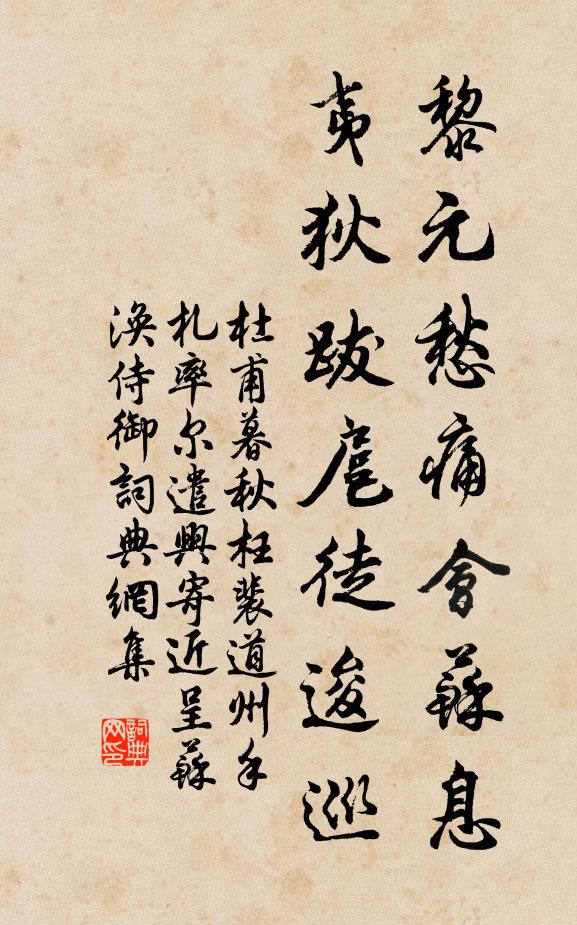 黎元愁痛會蘇息
夷狄跋扈徒逡巡
杜甫暮秋枉裴道州手
札率尔遣興寄近呈蘇
渙侍御詞典網集
詞典网印